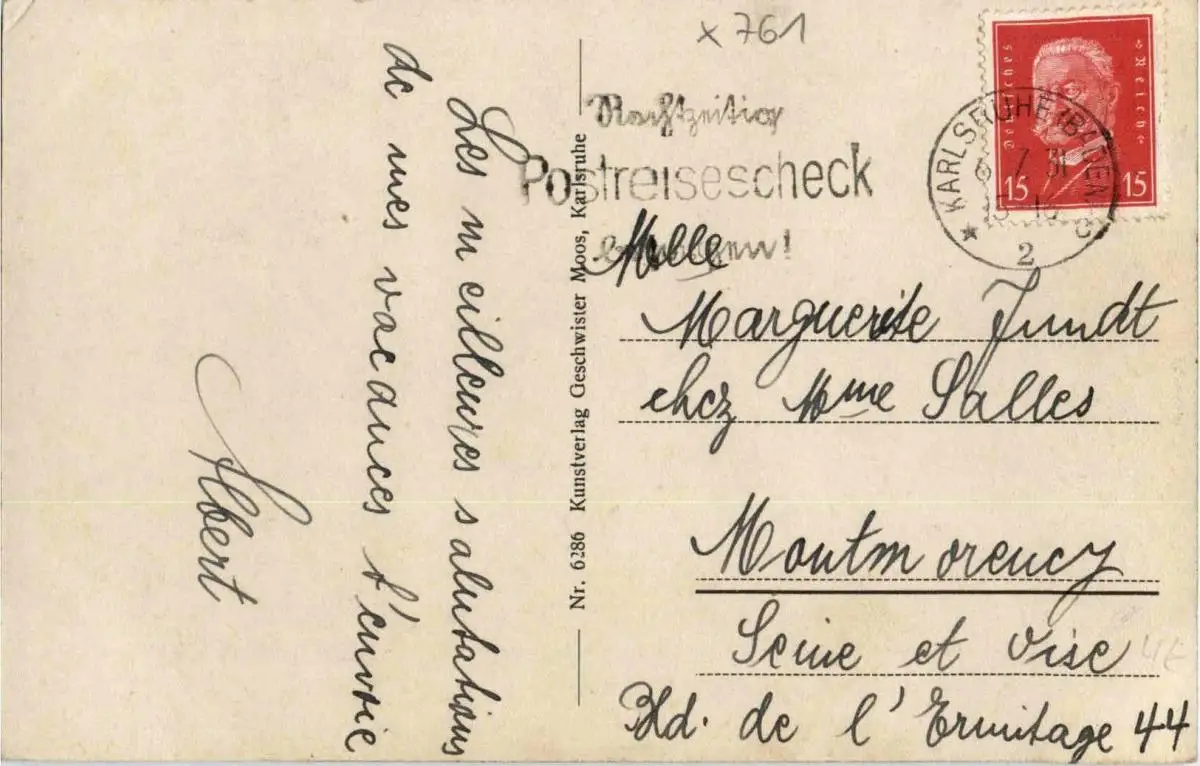 x 761
Les meilleures salutations
de mes vacances t'envoie
Albert
Nr. 6286 Kunstverlag Geschwister Moos, Karlsruhe
Rechtzeitig
Postreisescheck
Deutsches Reich
15 15
KARLSRUHE (BADEN)
6 7 31
2
Melle
Marguerite Jundt
chez Mme Salles
Montmorency
Seine et Oise
Bld. de l'Ermitage 44